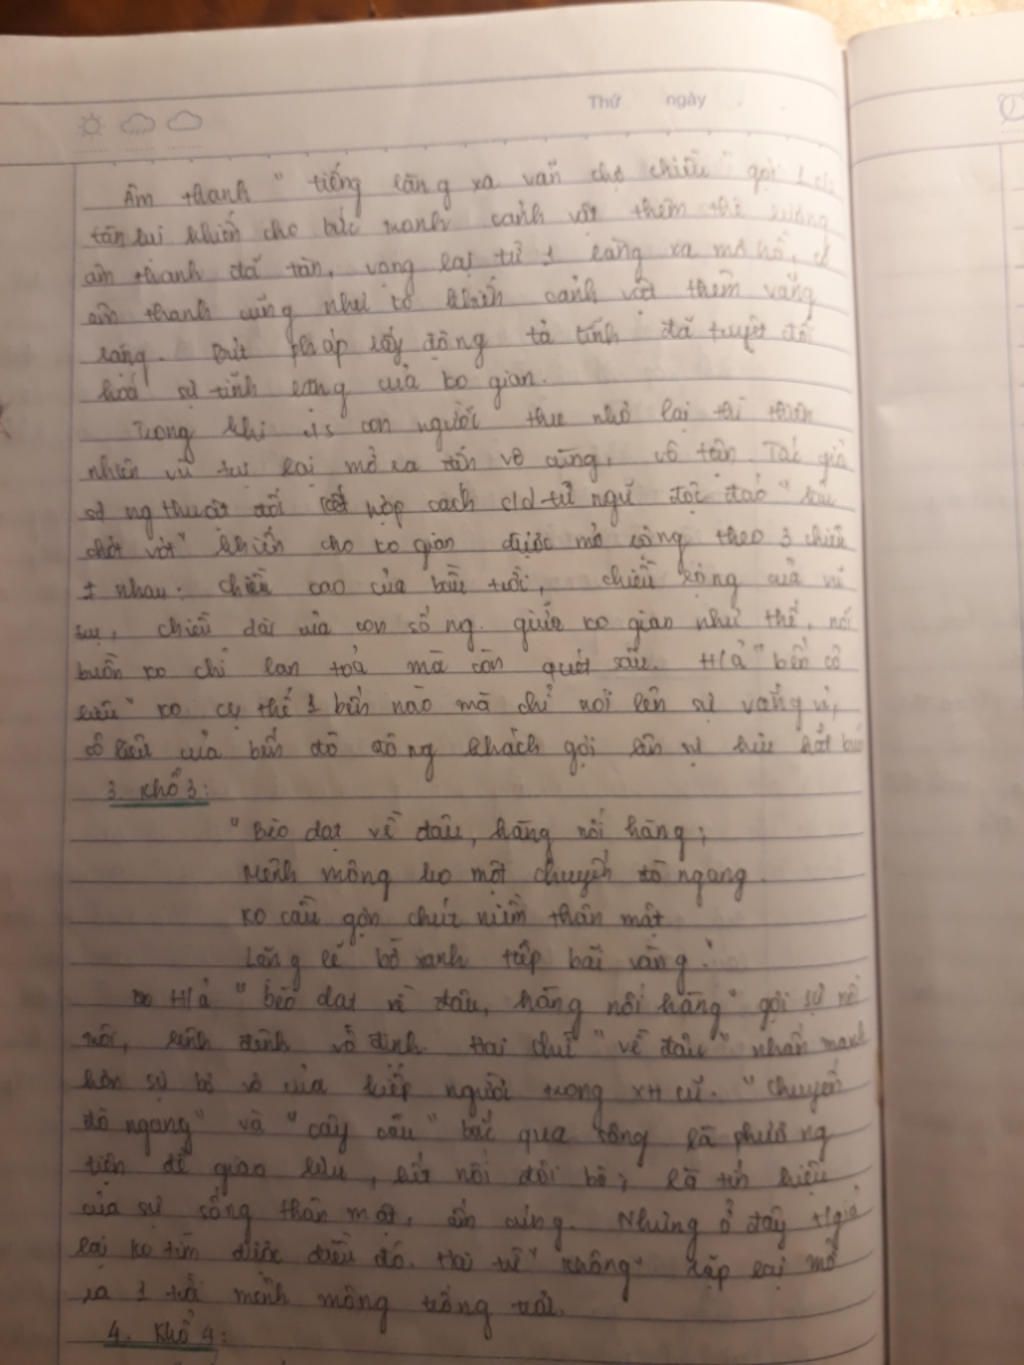 Thứ ngày
Âm thanh " tiếng làng xa vãn chợ chiều " gợi 1
tàn lụi khiến cho bức tranh cảnh vật thêm thê lương
âm thanh đã tàn, vọng lại từ 1 làng xa mơ hồ, có
âm thanh cũng như ko khiến cảnh vật thêm vắng
lặng. Bút pháp lấy động tả tĩnh đã tuyệt đối
hoá sự tĩnh lặng của ko gian.
Trong khi c/s con người thu nhỏ lại thì thiên
nhiên vũ trụ lại mở ra đến vô cùng, vô tận. Tác giả
sd ng thuật đối kết hợp cách d/đ từ ngữ độc đáo " sâu
chót vót " khiến cho ko gian được mở rộng theo 3 chiều
≠ nhau: chiều cao của bầu trời, chiều rộng của vũ
trụ, chiều dài của con sông. giữa ko gian như thế, nỗi
buồn ko chỉ lan toả mà còn quét sâu. H/ả " bến cô
liêu " ko cụ thể 1 bến nào mà chỉ nói lên sự vắng vẻ,
cô liêu của bến đò đông khách gợi lên sự hiu hắt
3. Khổ 3:
" Bèo dạt về đâu, hàng nối hàng;
Mênh mông ko một chuyến đò ngang.
Ko cầu gợn chút niềm thân mật
Lặng lẽ bờ xanh tiếp bãi vàng."
H/ả " bèo dạt về đâu, hàng nối hàng " gợi sự
trôi, lênh đênh vô định. Hai chữ " về đâu " nhấn mạnh
hơn sự bơ vơ của kiếp người trong XH cũ. " Chuyến
đò ngang " và " cây cầu " bắc qua sông là phương
tiện để giao lưu, kết nối đôi bờ; là tín hiệu
của sự sống thân mật, ấm cúng. Nhưng ở đây t/giả
lại ko tìm được điều đó. Hai từ " không " lặp lại mở
ra 1 trời mênh mông trống trải.
4. Khổ 4: